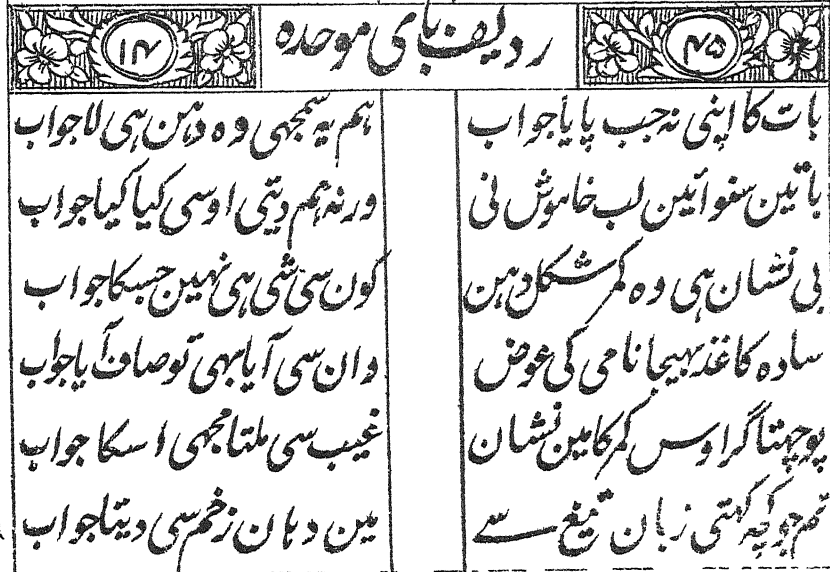 ۴۵ ردیف بای موحده ۱۴
بات کا اپنی نہ جب پایا جواب ہم یہ سمجھی وہ دہن ہی لاجواب
باتین سنوائین لب خاموش نی ورنہ ہم دیتی اوسی کیا کیا جواب
بی نشان ہی وہ کمر شکل دہن کون سی شی ہی نہین جسکا جواب
سادہ کاغذ بہیجا نامی کی عوض وان سی آیا بہی تو صاف آیا جواب
پوچہتا گر اوس کمر کا مین نشان غیب سی ملتا مجہی اسکا جواب
تم جو کچہ کہتی زبان تیغ سے مین دہان زخم سی دیتا جواب